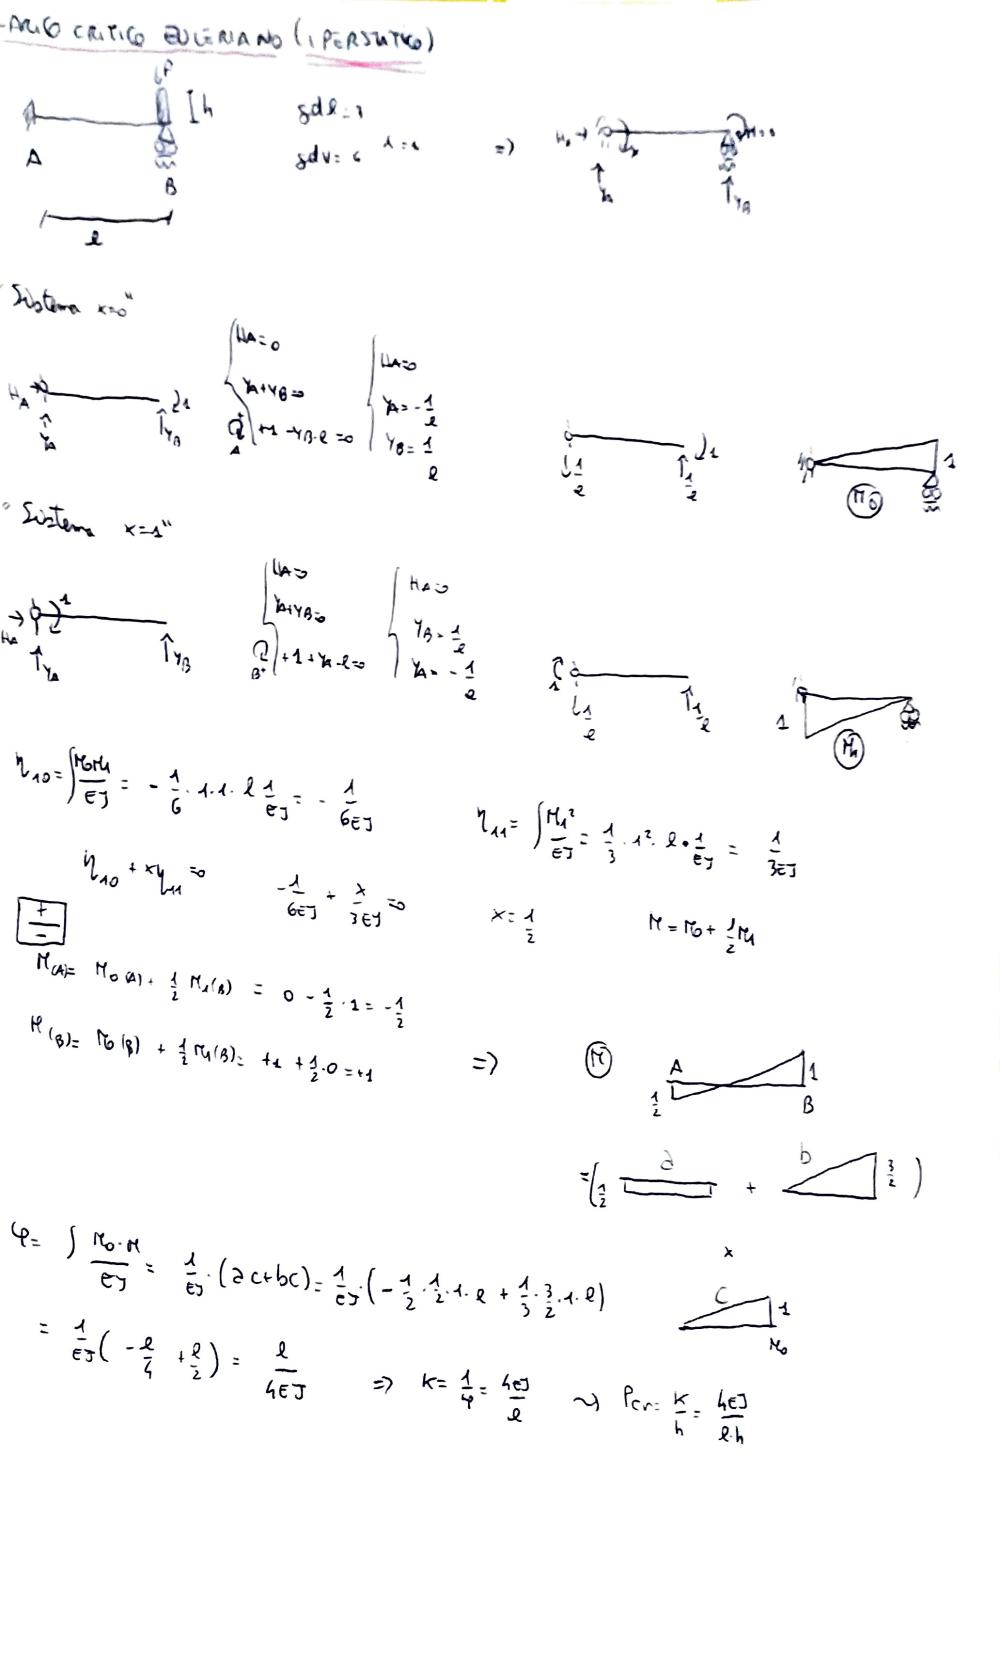 CARICO CRITICO EULERIANO (IPERSTATICO)
P
h
A
B
l
gdv= 6
=>
YA
YB
"Sistema x=0"
HA
YA
YB
1
HA=0
YA+YB=0
A +1 -YB·l=0
HA=0
YA=-1/l
YB=1/l
1/l
1/l
1
1
M0
"Sistema x=1"
HA
1
YA
YB
HA=0
YA+YB=0
B +1+YA·l=0
HA=0
YB=1/l
YA=-1/l
1
1/l
1/l
1
M1
η10=∫M0M1/EJ = -1/6·1·1·l 1/EJ = -1/6EJ
η11=∫M1²/EJ = 1/3·1²·l·1/EJ = 1/3EJ
η10+xη11=0
-1/6EJ + x/3EJ=0
x=1/2
M=M0+1/2M1
+
-
M(A)= M0(A)+1/2 M1(B) = 0-1/2·1=-1/2
M(B)= M0(B)+1/2 M1(B)= +1+1/2·0=+1
=>
M
A
1/2
1
B
=(1/2 a + b 3/2)
x
c
1
M0
φ= ∫M0·M/EJ = 1/EJ·(ac+bc)=1/EJ·(-1/2·1/2·1·l+1/3·3/2·1·l)
= 1/EJ(-l/4+l/2)= l/4EJ => K=1/φ=4EJ/l ~> Pcr=K/h=4EJ/l·h